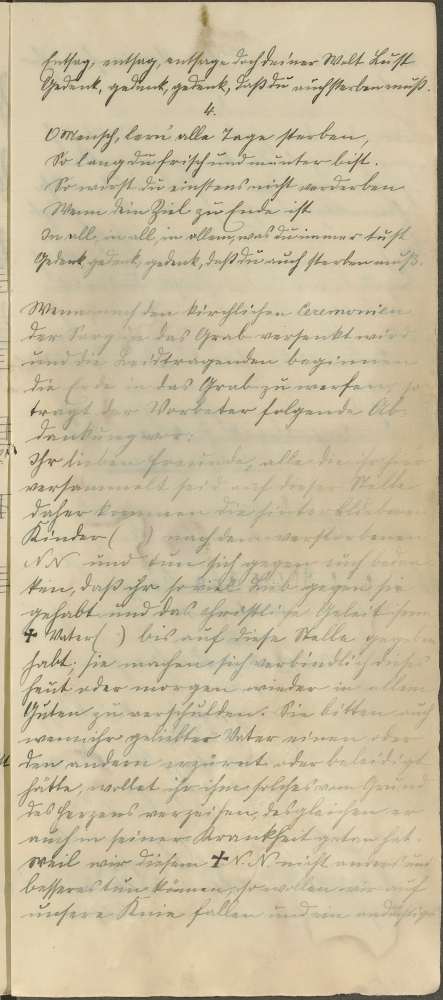 Entsag, entsag, entsage doch deiner Welt Lust
Gedenk, gedenk, gedenk, daß du auch sterben mußt.
4.
O Mensch, lern' alle Tage sterben,
So lang du frisch und munter bist.
So wirst du einstens nicht verderben
Wenn dein Ziel zu Ende ist
In all, in all, in allem, was du immer tust
Gedenk, gedenk, gedenk, daß du auch sterben mußt.
Wenn nach den kirchlichen Ceremonien
der Sarg in das Grab versenkt wird
und die Leidtragenden beginnen
die Erde in das Grab zu werfen, so
tragt der Vorbeter folgende Ab-
dankung vor:
Ihr lieben Freunde, alle die ihr hier
versammelt seid auf dieser Stelle
daher kommen die hinterbliebenen
Kinder ( ) nach dem verstorbenen
N N und tun sich gegen euch bedan-
ken, daß ihr so viel Lieb gegen sie
gehabt und das christliche Geleit ihrem
✝ Vater ( ) bis auf diese Stelle gegeben
habt; sie machen sich verbindlich dieses
heut oder morgen wieder in allem
Guten zu verschulden. Sie bitten auch
wenn ihr geliebter Vater einen oder
den andern erzürnt oder beleidigt
hätte, wollet ihr ihm solches vom Grund
des Herzens verzeihen, desgleichen er
auch in seiner Krankheit getan hat.
Weil wir diesem ✝ N. N. nicht anders und
besseres tun können, so wollen wir auf
unsere Knie fallen und ein andächtiges